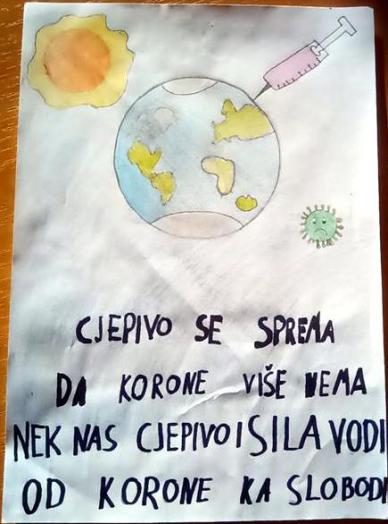 CJEPIVO SE SPREMA
DA KORONE VIŠE NEMA
NEK NAS CJEPIVO I SILA VODI
OD KORONE KA SLOBODI